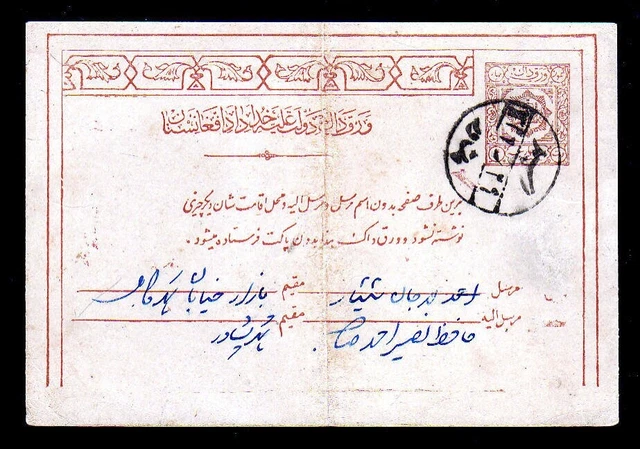 ورق ډاک
ورق ډاک دولت علیه خداداد افغانستان
برین طرف صفحه بدون اسم مرسل و مرسل الیه و محل اقامت شان دیگر چیزی
نوشته نشود و ورق ډاک هذا بدون پاکت فرستاده میشود.
مرسل احمد جان مقیم بازار خیابان
مرسل الیه حافظ نصیر احمد صاحب مقیم شهر پشاور